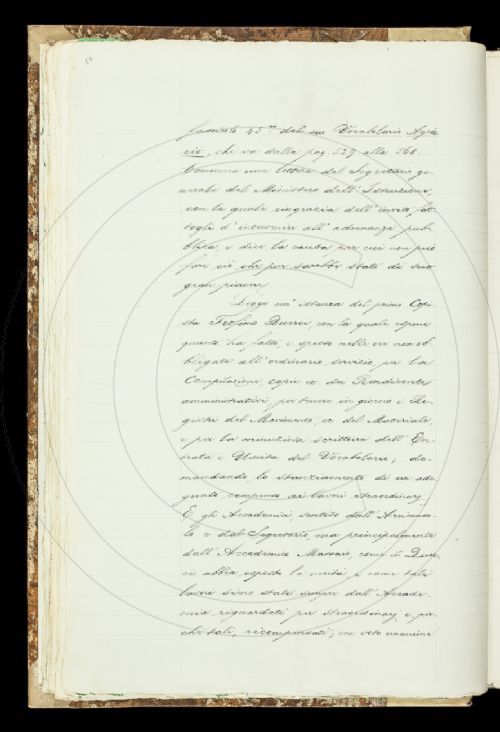 fascicolo 43mo del suo Vocabolario Agra-
rio, che va dalla pag. 529 alla 568.
Comunica una lettera del Segretario ge-
nerale del Ministero dell'Istruzione,
con la quale ringrazia dell'invito fat-
togli d'intervenire all'adunanza pub-
blica, e dice la causa per cui non può
far ciò che pur sarebbe stato di suo
gran piacere.
Legge un'istanza del primo Copi-
sta Trofimo Ducci con la quale espone
quanto ha fatto, e spesso nelle ore non ob-
bligate all'ordinario servizio, per la
Compilazione, copie ec dei Rendiconti
amministrativi, per tenere in giorno i Re-
gistri del Movimento, ec del Materiale,
e per la minutissima scrittura dell'En-
trata e Uscita del Vocabolario; do-
mandando lo stanziamento di un ade-
guato compenso ai lavori straordinarj.
E gli Accademici, sentito dall'Arciconso-
lo e dal Segretario, ma principalmente
dall'Accademico Massaio, come il Duc-
ci abbia esposto la verità e come tali
lavori siano stati sempre dall'Accade-
mia riguardati per straordinarj, e per-
chè tali, ricompensati; con voto unanime